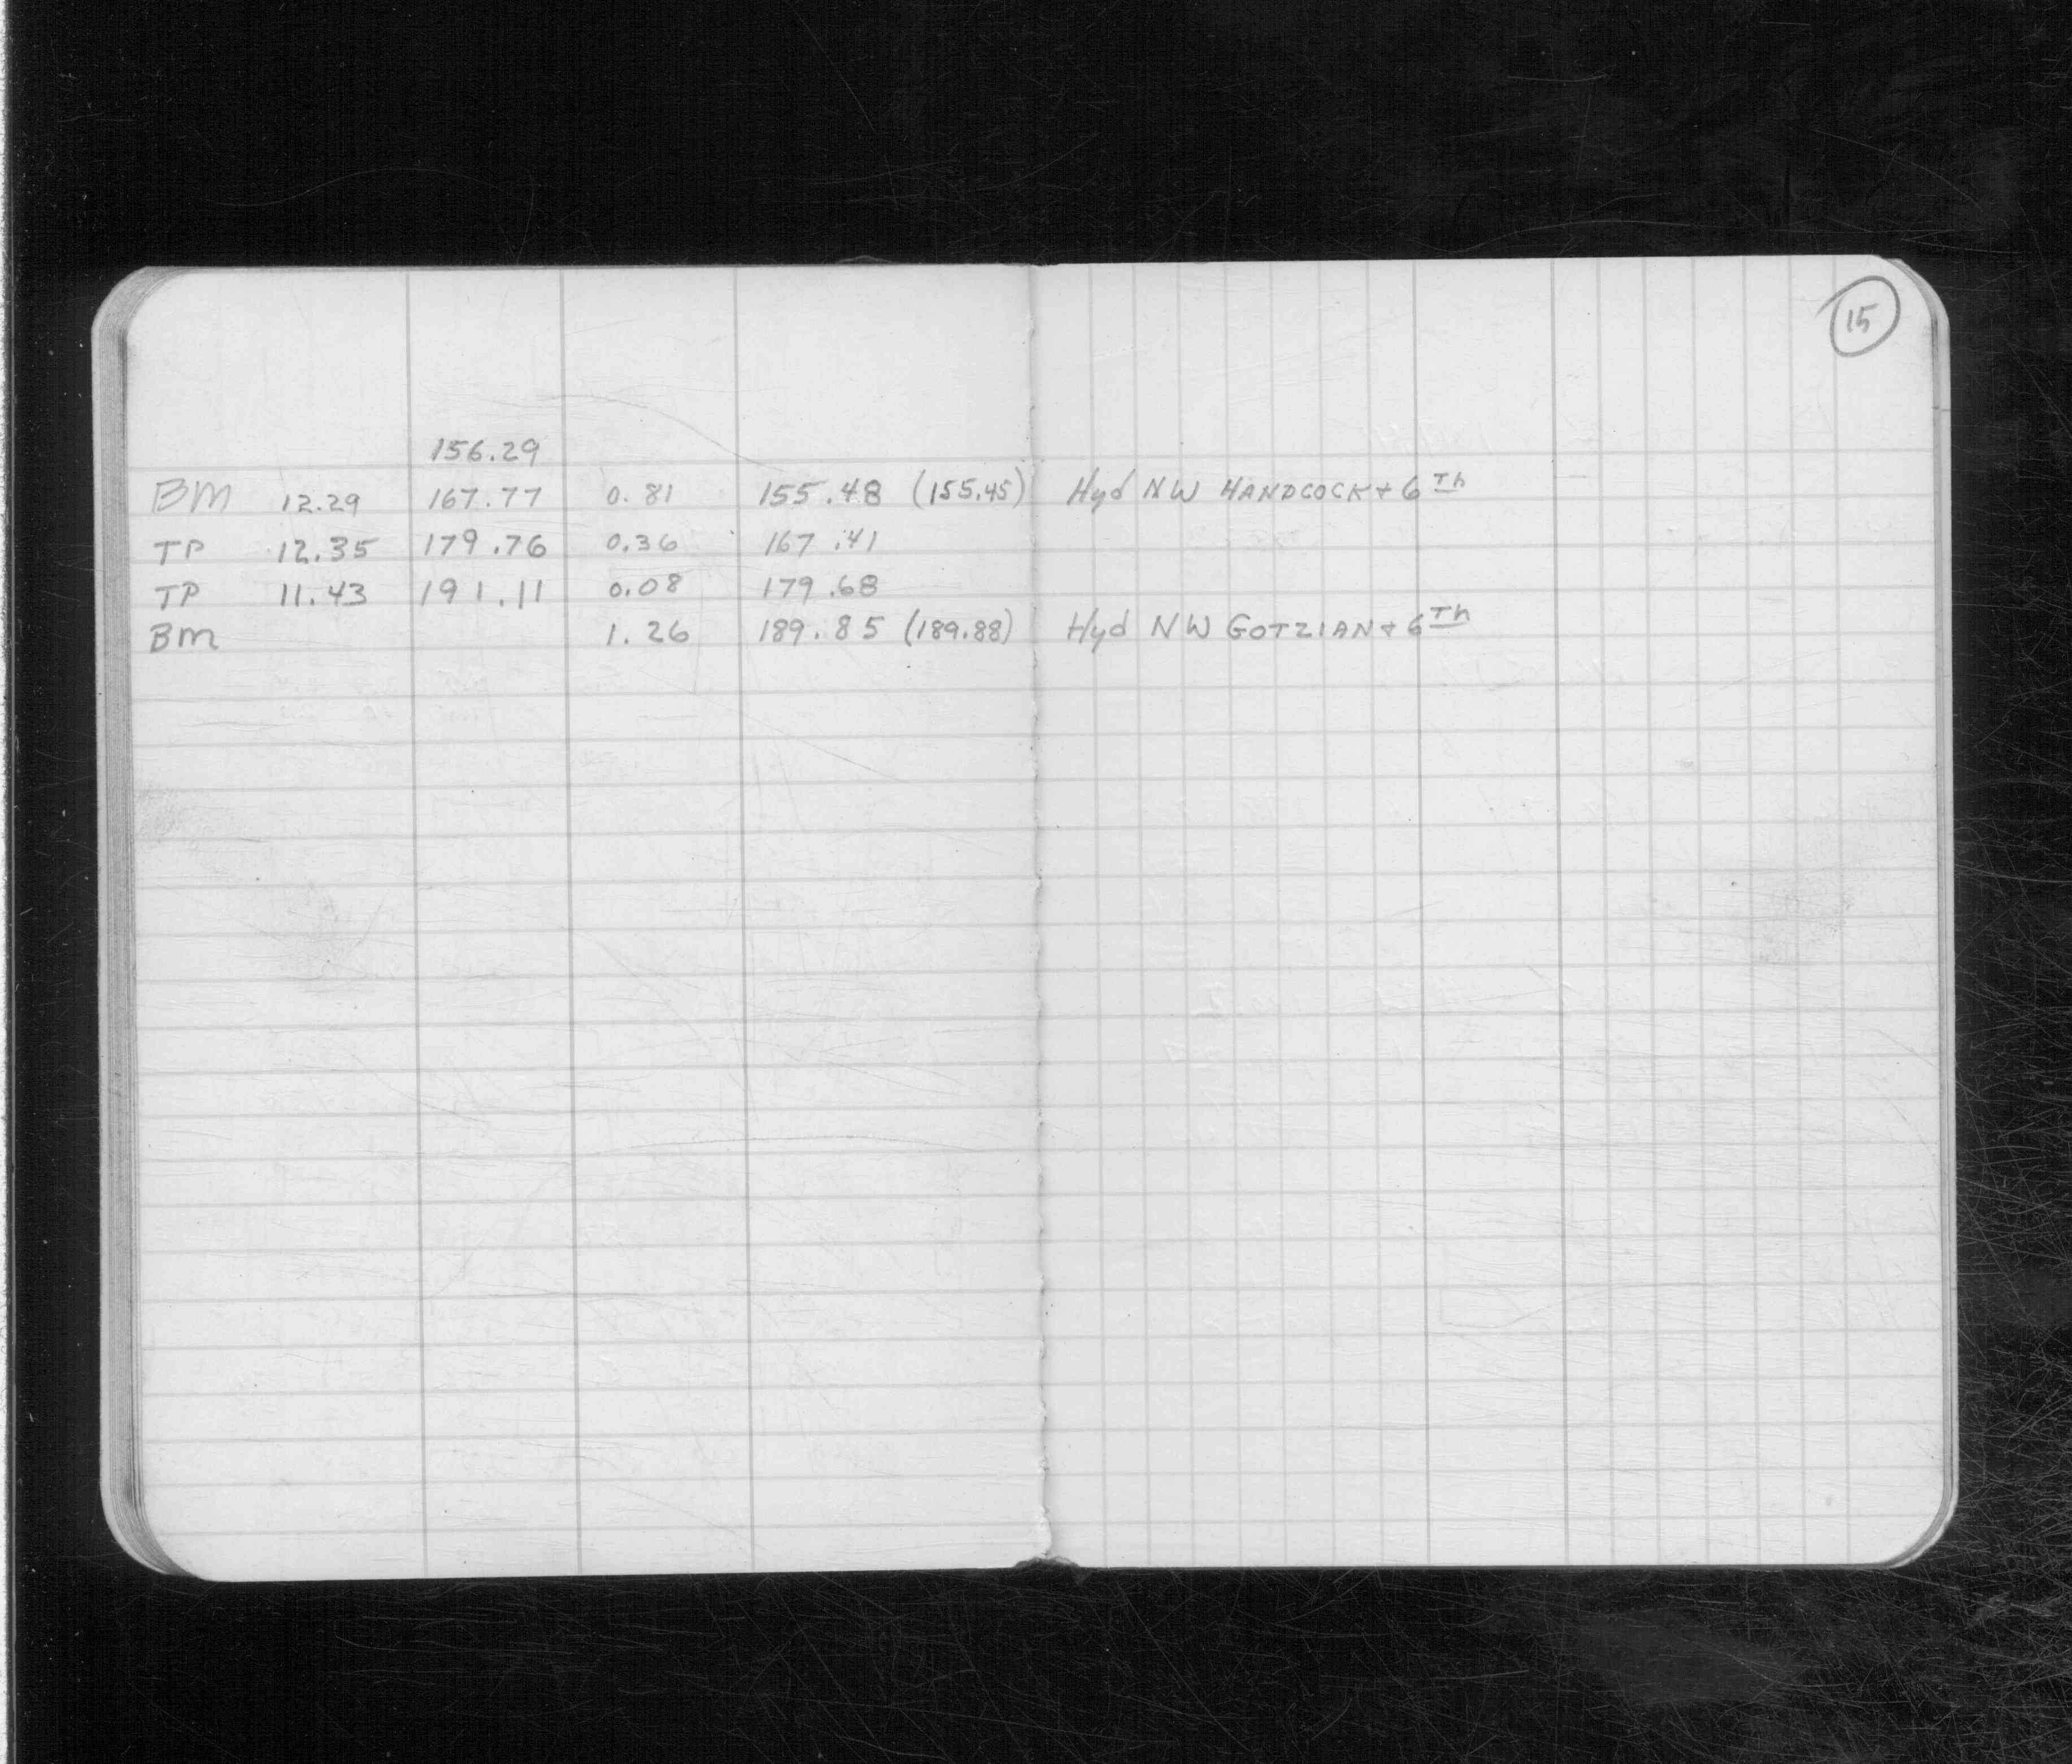 15
156.29
BM 12.29 167.77 0.81 155.48 (155.45) Hyd NW HANDCOCK + 6Th
TP 12.35 179.76 0.36 167.41
TP 11.43 191.11 0.08 179.68
BM 1.26 189.85 (189.88) Hyd NW GOTZIAN + 6Th